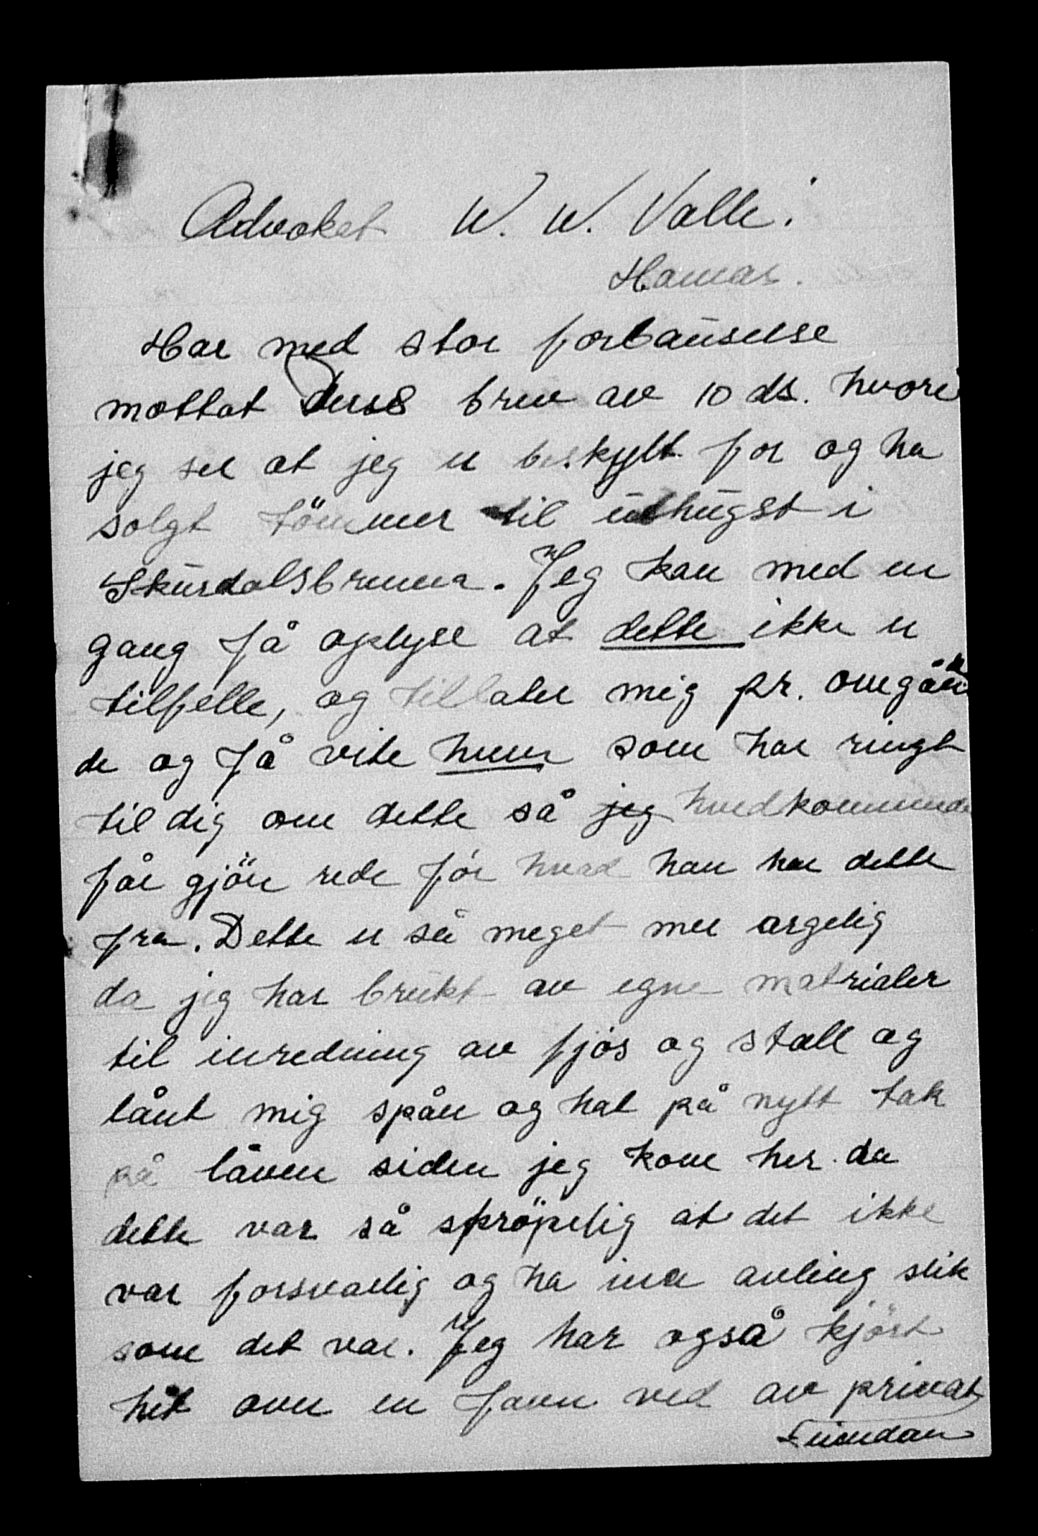 Advoket W. W. Valle.
Hamar.
Har med stor forbauselse
mottat Deres brev av 10 ds. hvori
jeg ser at jeg er beskylt for og ha
solgt tömmer til uthugst i
Skurdalsbrenna. Jeg kan med en
gang få oplyse at dette ikke er
tilfelle, og tillater mig pr. omgåen
de og få vite hvem som har ringt
til dig om dette så jeg hvedkommende
får gjöre rede for hvad han har dette
fra. Dette er så meget mer argelig
da jeg har brukt av egne matrialer
til inredning av fjøs og stall og
lånt mig spån og hat på nytt tak
på låven siden jeg kom her da
dette var så skröpelig at det ikke
var forsvarlig og ha inn avling slik
som det var. Jeg har også kjört
hit over en favn ved av privat